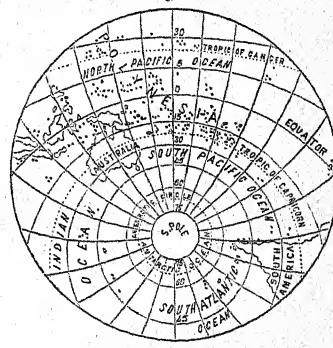 30
TROPIC OF CANCER
NORTH PACIFIC OCEAN
15
0
POLYNESIA
EQUATOR
15
30
AUSTRALIA
SOUTH PACIFIC OCEAN
TROPIC OF CAPRICORN
45
60
INDIAN OCEAN
S. POLE
ANTARCTIC OCEAN
SOUTH AMERICA
60
SOUTH ATLANTIC OCEAN
45